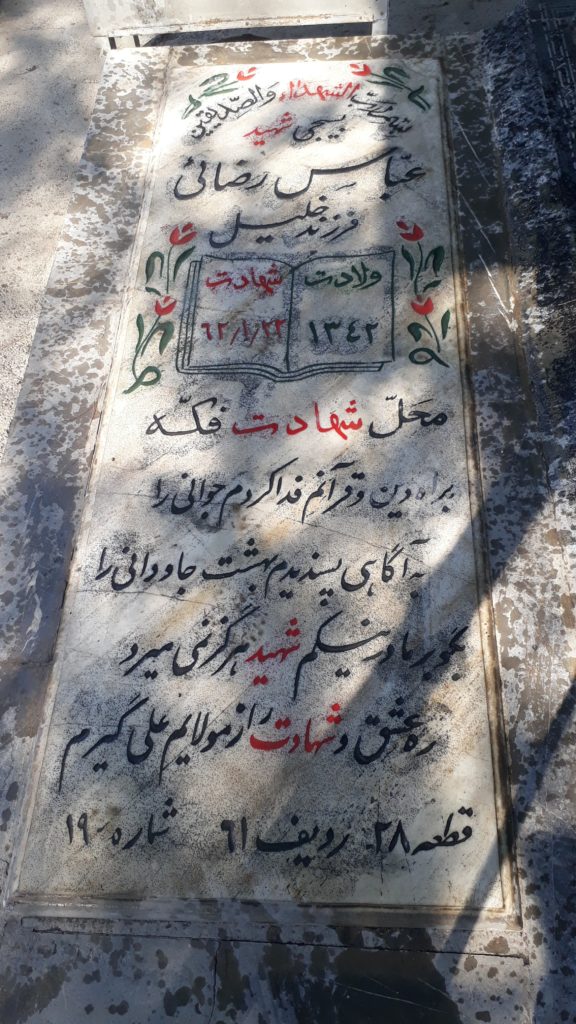 بسم رب الشهداء والصدیقین
بسیجی شهید
عباس رضائی
فرزند خلیل
ولادت
۱۳۴۲
شهادت
۶۲/۱/۲۲
محلّ شهادت فکه
براه دین و قرآنم فدا کردم جوانی را
به آگاهی پسندیدم بهشت جاودانی را
بگو بر مادر نیکم شهید هرگز نمی میرد
ره عشق و شهادت را از مولایم علی گیرم
قطعه ۲۸ ردیف ۶۱ شماره ۱۹